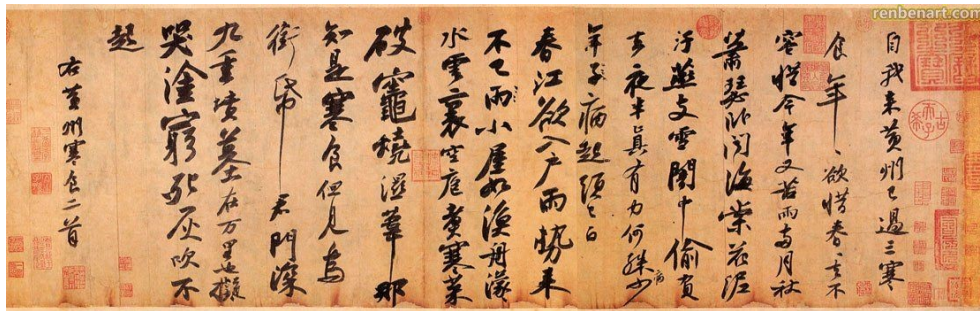 renbenart.com
自我来黄州已過三寒
食年〻欲惜春〻去不
容惜今年又苦雨兩月秋
蕭瑟卧聞海棠花泥
汙燕支雪闇中偷負
去夜半真有力何殊少
病
年子病起頭已白
春江欲入户雨勢来
不已雨小屋如漁舟濛〻
水雲裏空庖煮寒菜
破竈燒濕葦那
知是寒食但見烏
銜帋君門深
九重墳墓在万里也擬
哭塗窮死灰吹不
起
右黄州寒食二首
古希天子